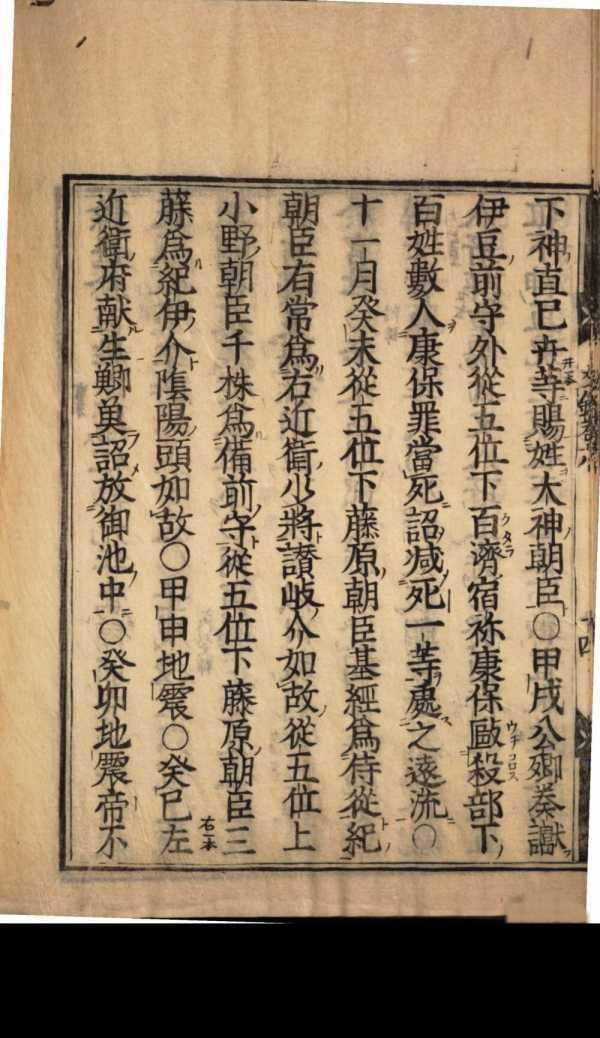 下神直巳井等賜姓大神朝臣○甲戌公卿奏讞
伊豆前守外從五位下百濟宿祢康保毆殺部下
百姓數人康保罪當死詔減死一等處之遠流○
十一月癸未從五位下藤原朝臣基經爲侍從紀
朝臣有常爲右近衛少將讃岐介如故從五位上
小野朝臣千株爲備前守從五位下藤原朝臣三
藤爲紀伊介陰陽頭如故○甲申地震○癸巳左
近衛府献生鯽魚詔放御池中○癸卯地震帝不